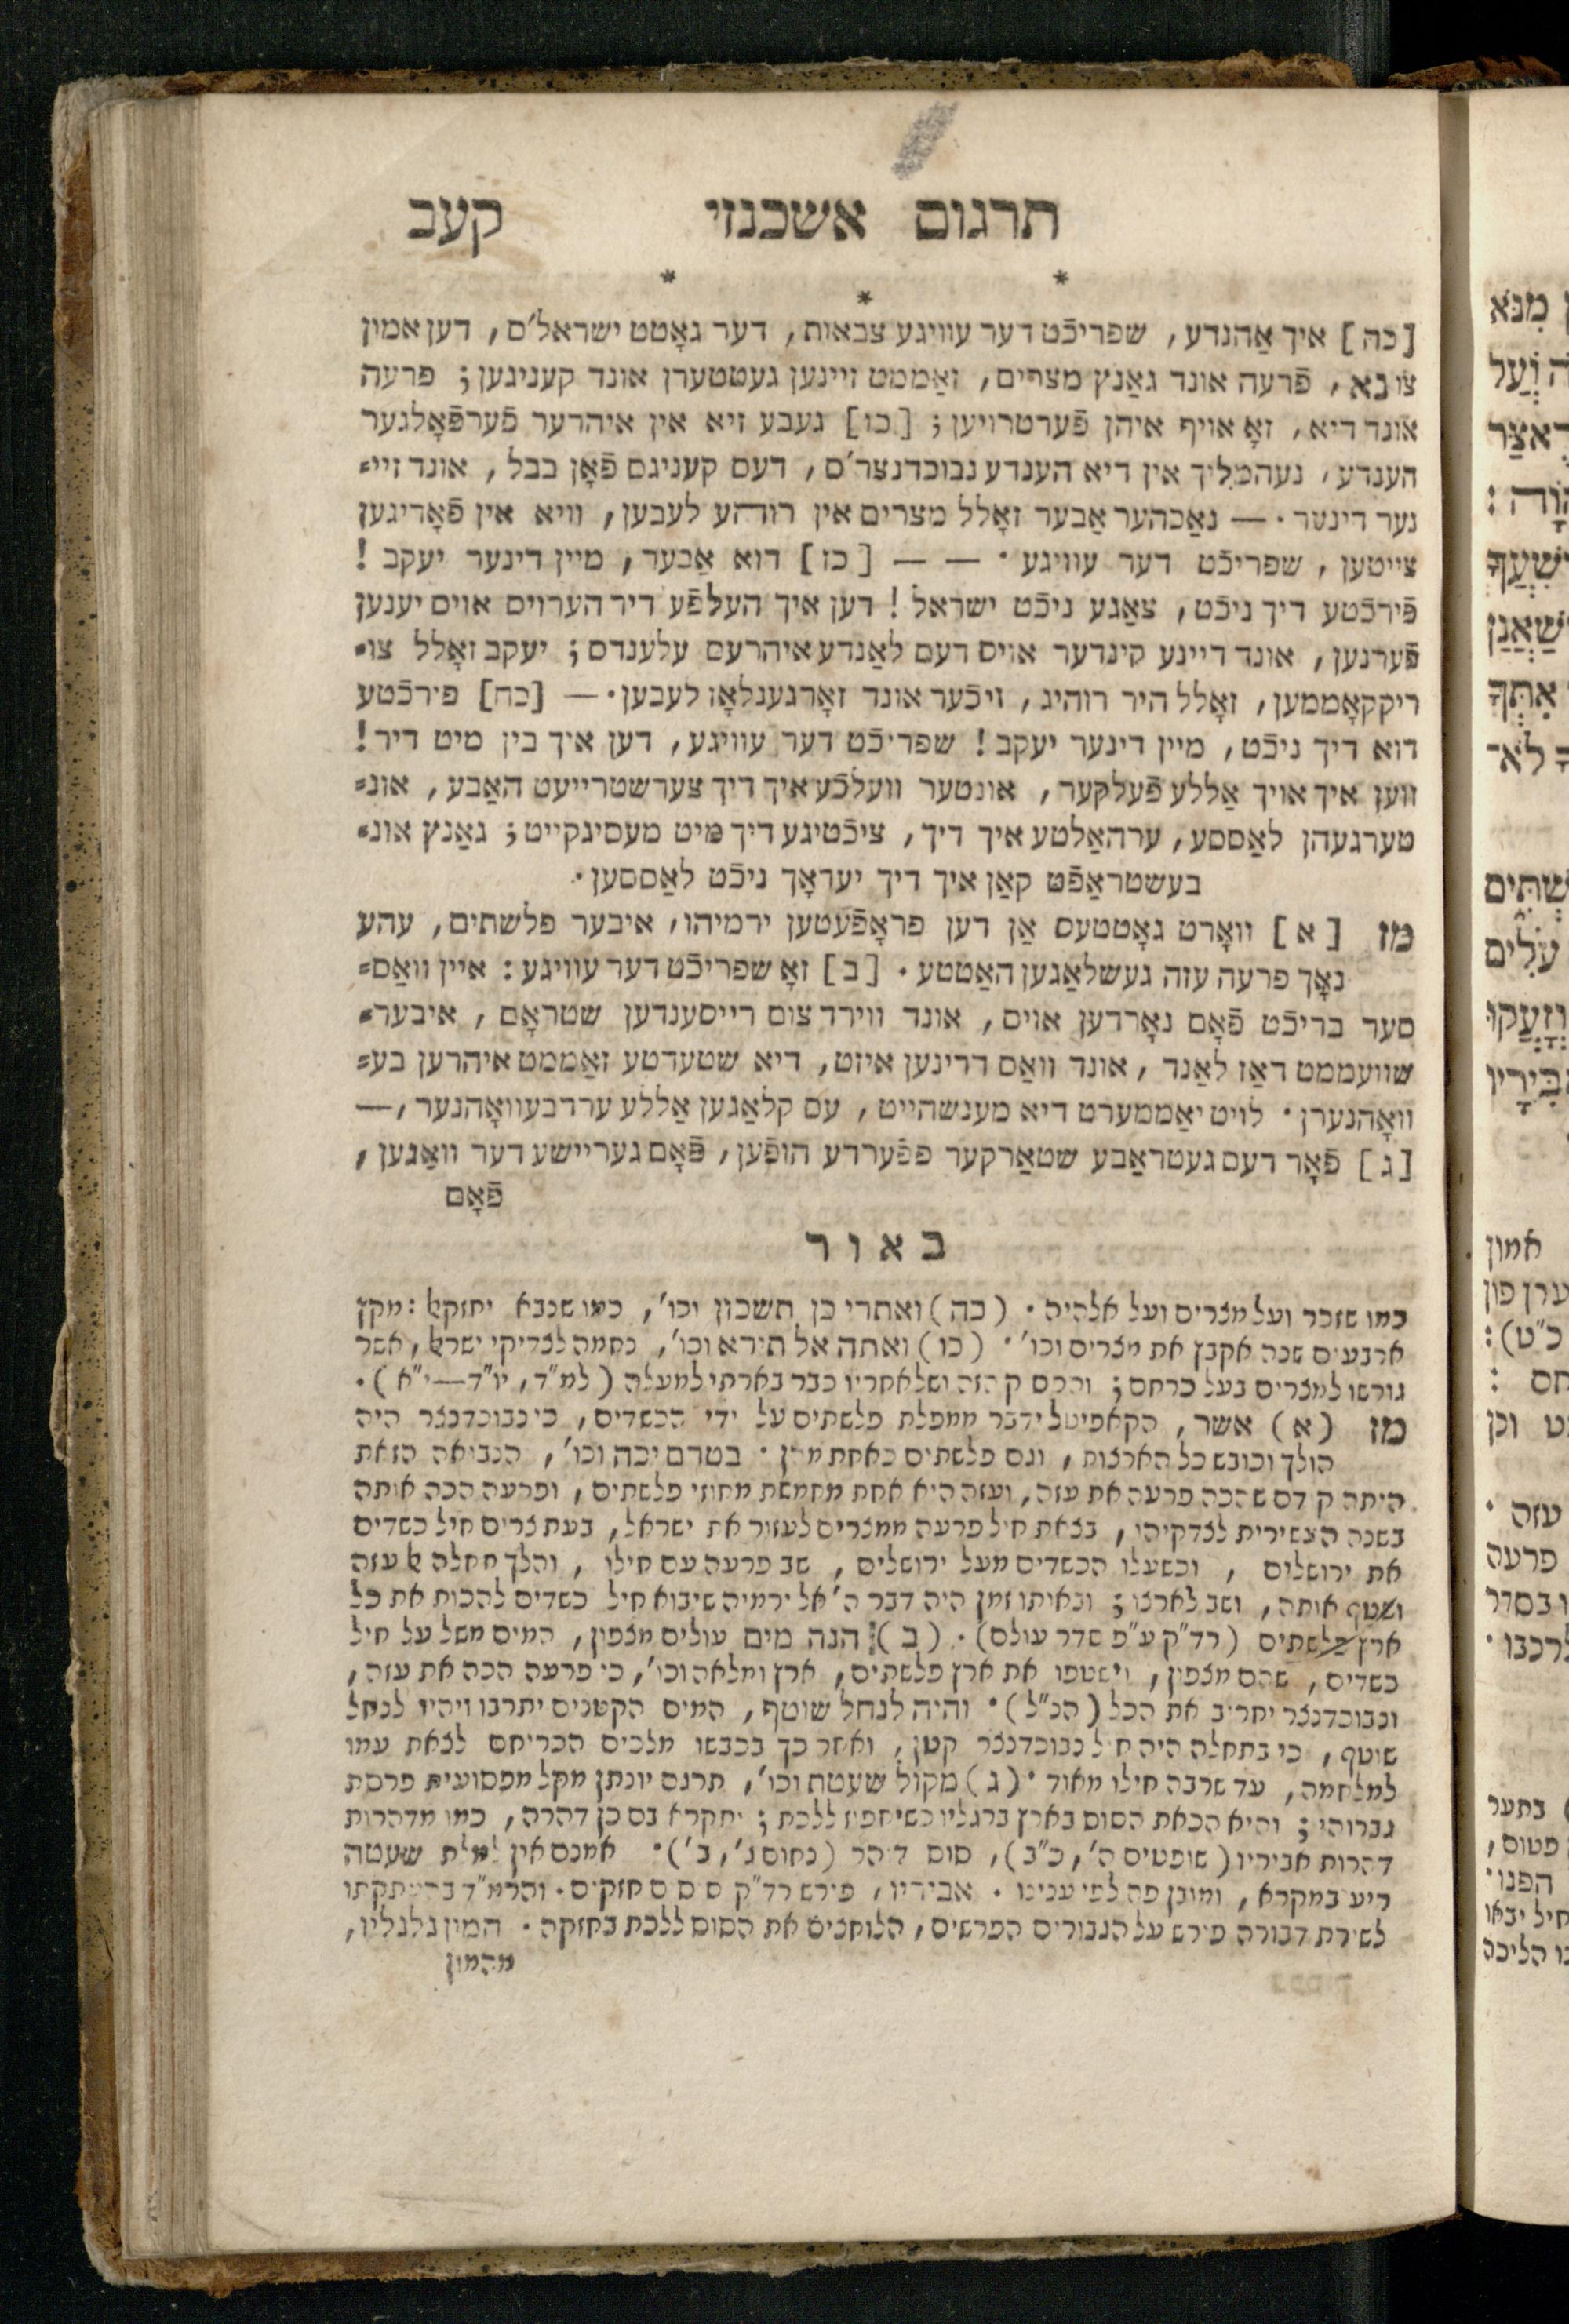 תרגום אשכנזי קעב
* * *
[כה] איך אַהנדע, שפריכֿט דער עוויגע צבאות, דער גאָטט ישראל'ס, דען אמין
צו נא, פֿרעה אונד גאַנץ מצרים, זאַממט זיינען געטטערן אונד קעניגען; פרעה
אונד דיא, זאָ אויף איהן פֿערטרויען; [כו] געבע זיא אין איהרער פֿערפֿאָלגער
הענדע, נעהמליך אין דיא הענדע נבוכדנצר'ס, דעם קעניגס פֿאָן בבל, אונד זיי=
נער דינער. — נאַכהער אַבער זאָלל מצרים אין רוהע לעבען, וויא אין פֿאָריגען
צייטען, שפריכֿט דער עוויגע. — — [כז] דוא אַבער, מיין דינער יעקב!
פֿירכֿטע דיך ניכֿט, צאַגע ניכֿט ישראל! דען איך העלפֿע דיר הערויס אויס יענען
פֿערנען, אונד דיינע קינדער אויס דעם לאַנדע איהרעס עלענדס; יעקב זאָלל צו=
ריקקאָממען, זאָלל היר רוהיג, זיכֿער אונד זאָרגענלאָז לעבען. — [כח] פֿירכֿטע
דוא דיך ניכֿט, מיין דינער יעקב! שפריכֿט דער עוויגע, דען איך בין מיט דיר!
ווען איך אויך אַללע פֿעלקער, אונטער וועלכֿע איך דיך צערשטרייעט האַבע, אונ=
טערגעהן לאַססע, ערהאַלטע איך דיך, ציכֿטיגע דיך מיט מעסיגקייט; גאַנץ אונ=
בעשטראַפֿט קאַן איך דיך יעדאָך ניכֿט לאַססען.
מז [א] וואָרט גאָטטעס אַן דען פראָפֿעטען ירמיהו, איבער פלשתים, עהע
נאָך פרעה עזה געשלאַגען האַטטע. [ב] זאָ שפריכֿט דער עוויגע: איין וואַס=
סער בריכֿט פֿאָם נאָרדען אויס, אונד ווירד צום רייסענדען שטראָם, איבער=
שוועממט דאַז לאַנד, אונד וואַס דרינען איזט, דיא שטעדטע זאַממט איהרען בע=
וואָהנערן. לויט יאַממערט דיא מענשהייט, עס קלאַגען אַללע ערדבעוואָהנער, —
[ג] פֿאָר דעם געטראַבע שטאַרקער פפֿערדע הופֿען, פֿאָם גערייישע דער וואַגען,
פֿאָם
באור
כמו שזכר ועל מצרים ועל אלהיה. (כה) ואחרי כן תשכון וכו', כמו שנבא יחזקאל: מקץ
ארבעים שנה אקבץ את מצרים וכו'. (כו) ואתה אל תירא וכו', נחמה לצדיקי ישראל, אשר
גורשו למצרים בעל כרחם; והפסוק הזה ושלאחריו כבר בארתי למעלה (למ"ד, יו"ד—י"א).
מז (א) אשר, הקאפיטל ידבר ממפלת פלשתים על ידי הכשדים, כי נבוכדנצר היה
הולך וכובש כל הארצות, וגם פלשתים כאחת מהן. בטרם יכה וכו', הנבואה הזאת
היתה קודם שהכה פרעה את עזה, ועזה היא אחת מחמשת מחוזי פלשתים, ופרעה הכה אותה
בשנה העשירית לצדקיהו, בצאת חיל פרעה ממצרים לעזור את ישראל, בעת צרים חיל כשדים
את ירושלים, וכשעלו הכשדים מעל ירושלים, שב פרעה עם חילו, והלך תחלה אל עזה
ושטף אותה, ושב לארצו; ובאותו זמן היה דבר ה' אל ירמיה שיבוא חיל כשדים להכות את כל
ארץ פלשתים (רד"ק ע"פ סדר עולם). (ב) הנה מים עולים מצפון, המים משל על חיל
כשדים, שהם מצפון, וישטפו את ארץ פלשתים, ארץ ומלאה וכו', כי פרעה הכה את עזה,
ונבוכדנצר יחריב את הכל (הנ"ל). והיה לנחל שוטף, המים הקטנים יתרבו ויהיו לנחל
שוטף, כי בתחלה היה חיל נבוכדנצר קטן, ואחר כך בכבשו מלכים הכריחם לצאת עמו
למלחמה, עד שרבה חילו מאוד. (ג) מקול שעטת וכו', תרגם יונתן מקל מפסועית פרסת
גברוהי; והיא הכאת הסוס בארץ ברגליו כשיחפוז ללכת; יתקרא גם כן דהרה, כמו מדהרות
דהרות אביריו (שופטים ה', כ"ב), סוס דוהר (נחום ג', ב'). אמנם אין למלת שעטה
ריע במקרא, ומובן פה לפי ענינו. אביריו, פירש רד"ק סוסים חזקים. והרמ"ד בהעתקתו
לשירת דבורה פירש על הגבורים הפרשים, הלוחצים את הסוס ללכת בחזקה. המון גלגליו,
מהמון